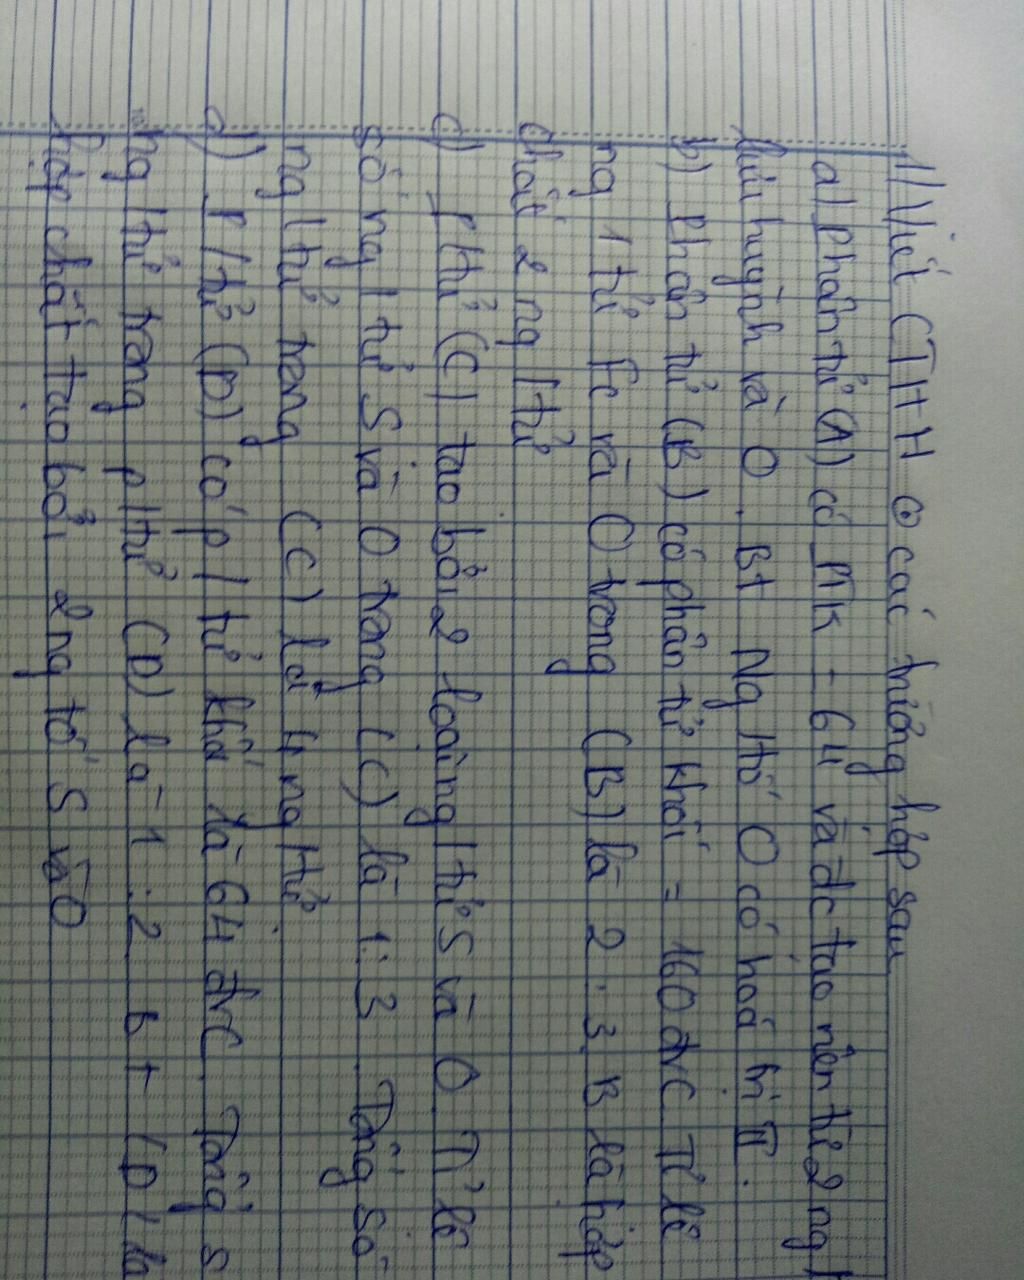 1/ Viết CTHH ở các trường hợp sau
a/ phân tử (A) có PTK = 64 và đc tạo nên từ 2 ng/
lưu huỳnh và O. Bt Ng/tố O có hoá trị II.
b) phân tử (B) có phân tử khối = 160 đvC Tỉ lệ
ng 1 tử Fe và O trong (B) là 2:3 B là hợp
chất 2 ng/tử
c) p/tử (C) tạo bởi 2 loại ng/tử S và O. Tỉ lệ
số ng/tử S và O trong (C) là 1:3. Tổng số
ng/tử trong (C) là 4 ng/tử
d) P/tử (D) có p/tử khối là 64 đvC. Tổng s
ng/tử trong p/tử (D) là 1:2 bt (D) là
hợp chất tạo bởi 2 ng tố S và O